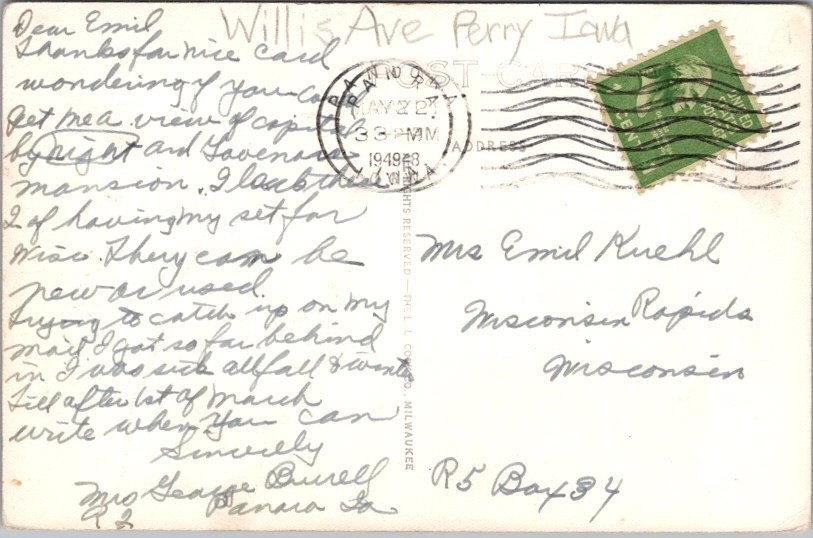 Willis Ave Perry Iowa
POST CARD
Dear Emil
Thanks for nice card
wondering if you can
get me a view of capitol
by night and Govenors
mansion. I lack those
2 of having my set for
Wisc. They can be
new or used.
Trying to catch up on my
mail I got so far behind
in I was sick all fall & winter
till after 1st of March
write when you can
Sincerely
Mrs George Burrell
R 2 Panora Ia
PANORA
MAY 22
3 PM
1949
IOWA
ADDRESS
RIGHTS RESERVED — THE L. L. COOK CO., MILWAUKEE
UNITED STATES POSTAGE
1 CENT
Mrs Emil Kuehl
Wisconsin Rapids
Wisconsin
R5 Box 34